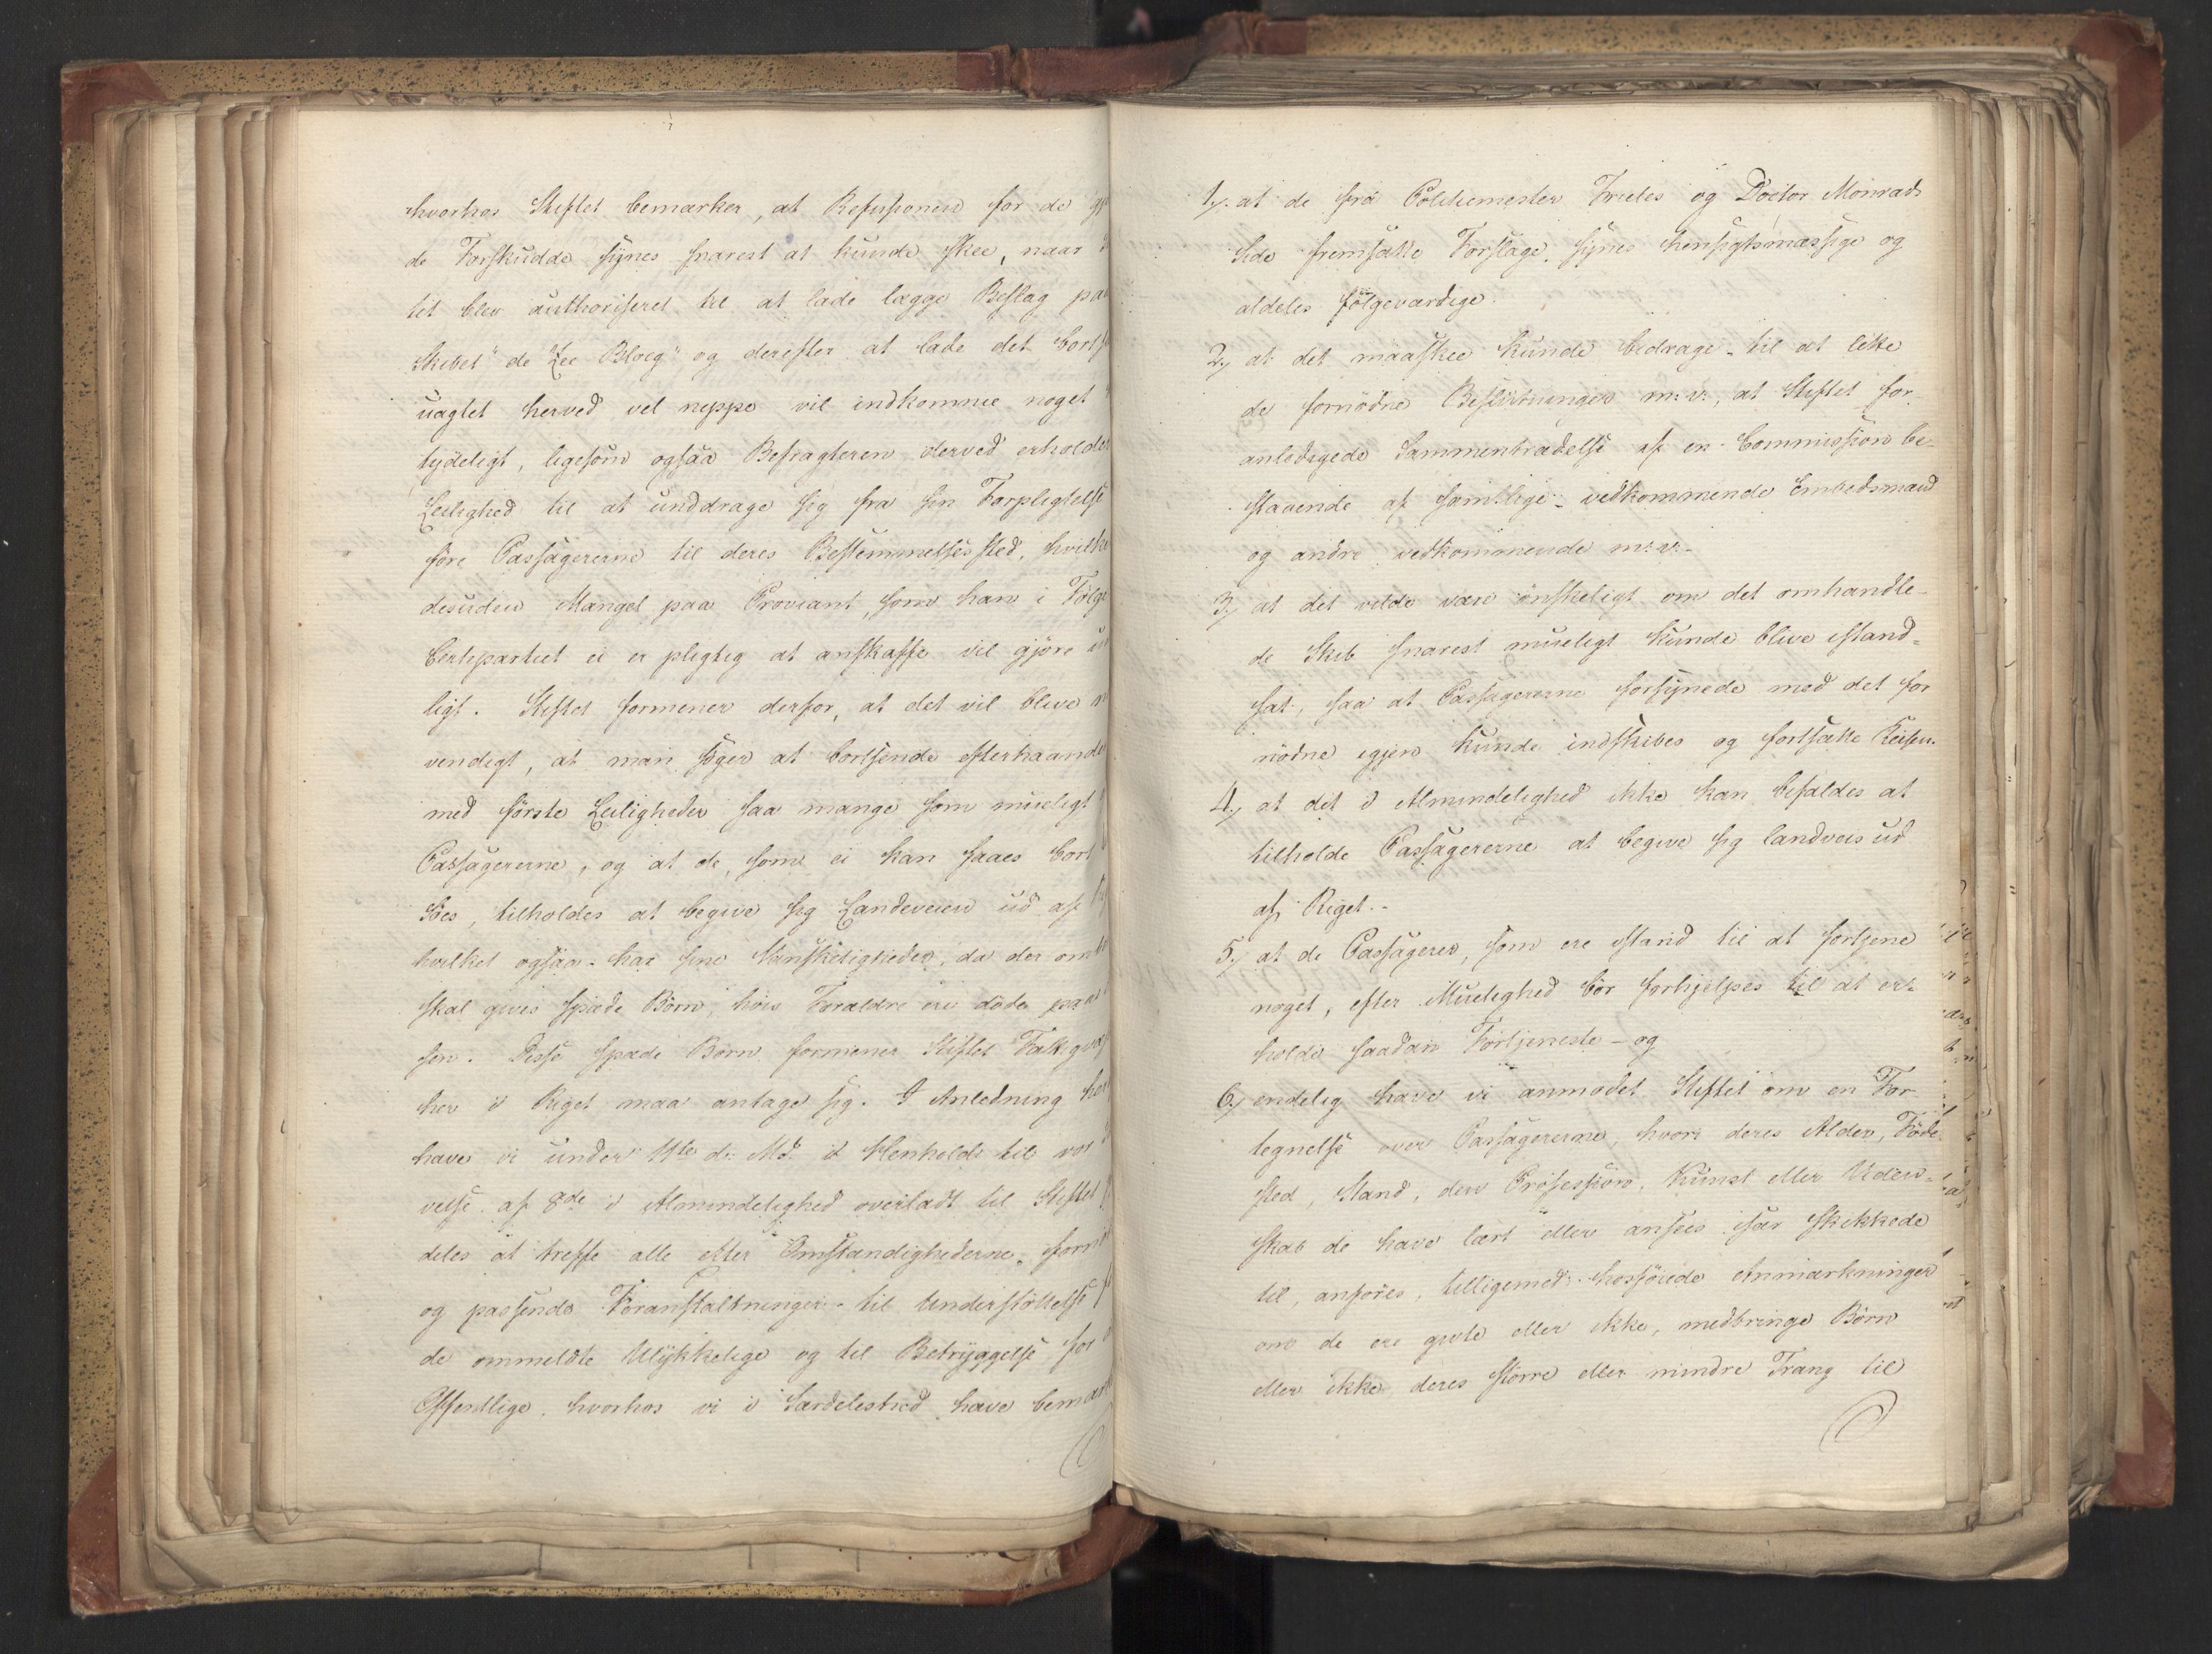 hvorhos Stiftet bemærker, at Refusionen for de
de Forskudde synes snarest at kunde skee, naar
tet blev authoriseret til at lade lægge Beslag paa
Skibet "de Zee Bloeg" og derefter at lade det bort
uagtet herved vel neppe vil indkomme noget
tydeligt, ligesom ogsaa Befragteren derved erholder
Leilighed til at unddrage sig fra sin Forpligtelse
före Passagererne til deres Bestemmelsessted, hvilke
desuden Mangel paa Proviant, som han i Fölge
Certepartiet ei er pligtig at anskaffe vil gjöre u
ligt. Stiftet formener derfor, at det vil blive n
vendigt, at man söger at bortsende efterhaanden
med förste Leiligheder saa mange som mueligt
Passagererne, og at de, som ei kan faaes bort
Söes, tilholdes at begive sig Landeveien ud af
hvilket ogsaa har sine Vanskeligheder, da der om
skal gives spæde Börn, hvis Forældre ere döde paa
sen. Disse spæde Börn formener Stiftet
her i Riget maa antage sig. I Anledning her
have vi under 11te d. Md. i Henhold til vor
velse af 8de i Almindelighed overladt til Stiftet
deles at treffe alle efter Omstændighederne forn
og passende Foranstaltninger til Understöttelse
de ommeldte Ulykkelige og til Betryggelse for
Offentlige, hvorhos vi i Særdeleshed have bemærk
1, at de fra Politiemester Frieles og Doctor Monrads
Side fremsatte Forslage, synes hensigtsmæssige og
aldeles fölgeværdige.
2, at det maaskee kunde bidrage til at lette
de fornödne Beslutninger m: v:, at Stiftet for-
anledigede Sammentrædelse af en Commission be-
staaende af samtlige vedkommende Embedsmænd
og andre vedkommende m: v:-
3, at det vilde være önskeligt om det omhandle-
de Skib snarest mueligt kunde blive istand-
sat, saa at Passagererne forsynede med det for
nödne igjen kunde indskibes og fortsætte Reisen.
4, at det i Almindelighed ikke kan befaldes at
tilholde Passagererne at begive sig landveis ud
af Riget.-
5, at de Passagerer, som ere istand til at fortjene
noget, efter Muelighed bör forhjelpes til at er-
holde saadan Fortjeneste - og
6, endelig have vi anmodet Stiftet om en For-
tegnelse over Passagererne, hvori deres Alder, Föde-
sted, Stand, den Profession, Kunst eller Viden-
skab de have lært eller ansees især skikkede
til, anföres, tilligemed hosföiede Anmærkninger
om de ere givte eller ikke, medbringe Börn
eller ikke deres större eller mindre Trang til